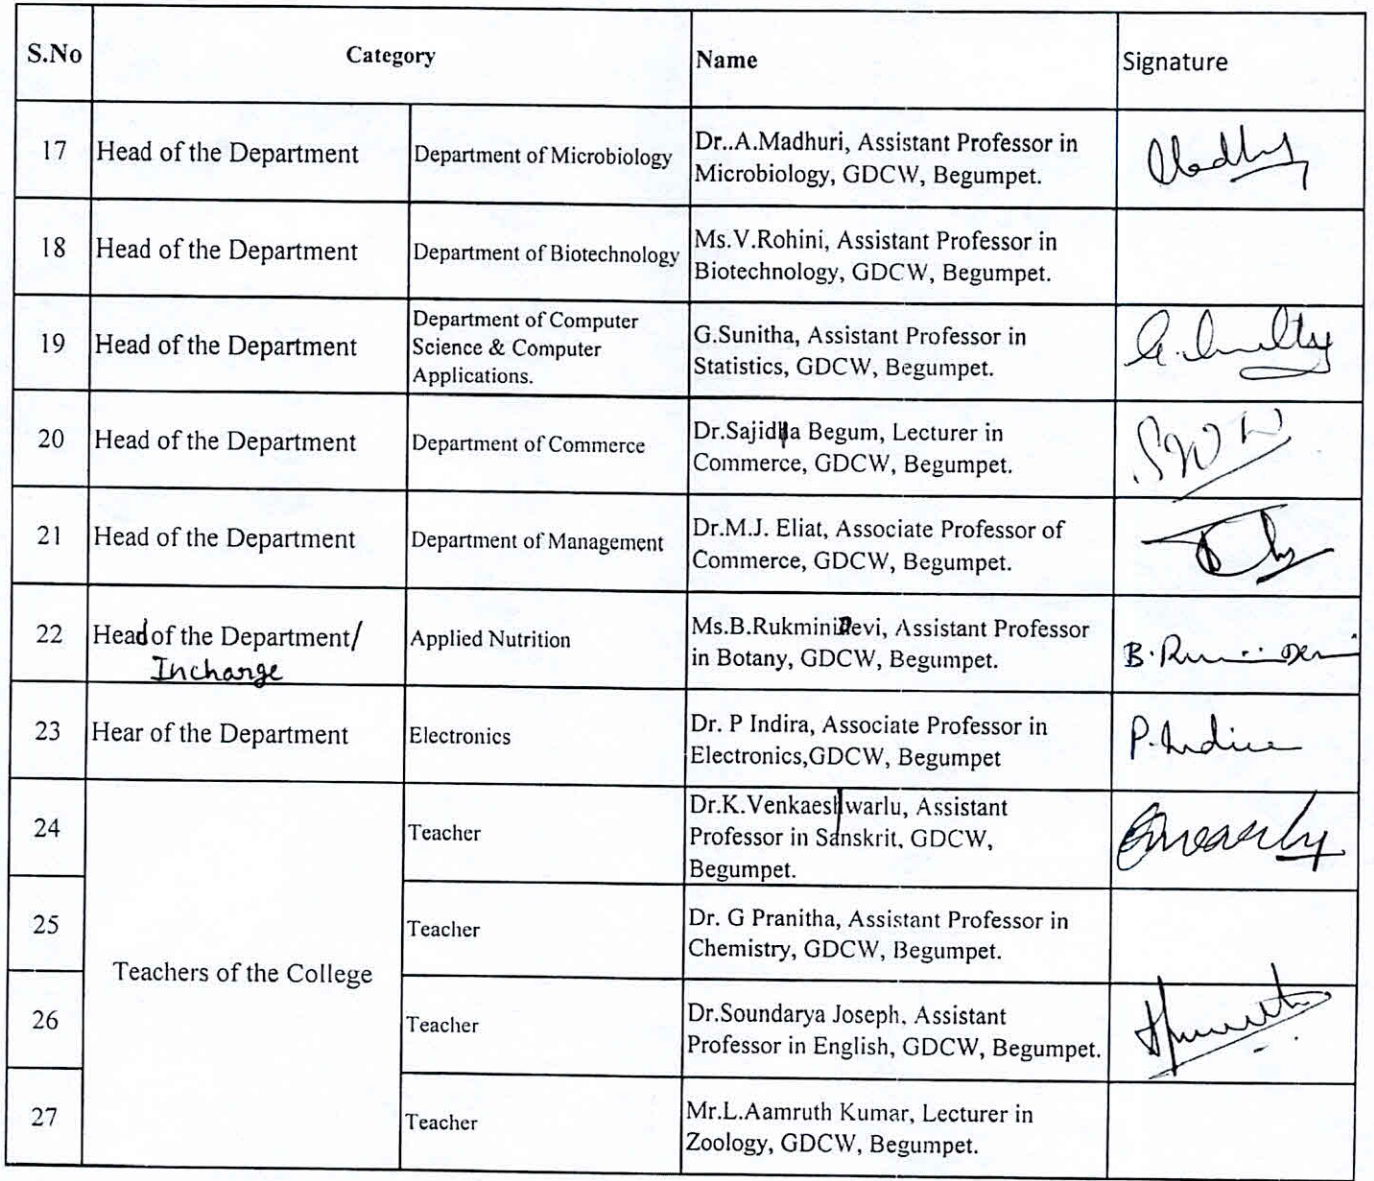 S.No Category Name Signature
17 Head of the Department Department of Microbiology Dr..A.Madhuri, Assistant Professor in
Microbiology, GDCW, Begumpet.
18 Head of the Department Department of Biotechnology Ms.V.Rohini, Assistant Professor in
Biotechnology, GDCW, Begumpet.
19 Head of the Department Department of Computer
Science & Computer
Applications.
G.Sunitha, Assistant Professor in
Statistics, GDCW, Begumpet.
20 Head of the Department Department of Commerce Dr.Sajida Begum, Lecturer in
Commerce, GDCW, Begumpet.
21 Head of the Department Department of Management Dr.M.J. Eliat, Associate Professor of
Commerce, GDCW, Begumpet.
22 Head of the Department/
Incharge
Applied Nutrition Ms.B.RukminiDevi, Assistant Professor
in Botany, GDCW, Begumpet.
23 Hear of the Department Electronics Dr. P Indira, Associate Professor in
Electronics,GDCW, Begumpet
P.Indira
24 Teacher Dr.K.Venkaeshwarlu, Assistant
Professor in Sanskrit, GDCW,
Begumpet.
25 Teacher Dr. G Pranitha, Assistant Professor in
Chemistry, GDCW, Begumpet.
Teachers of the College
26 Teacher Dr.Soundarya Joseph, Assistant
Professor in English, GDCW, Begumpet.
27 Teacher Mr.L.Aamruth Kumar, Lecturer in
Zoology, GDCW, Begumpet.